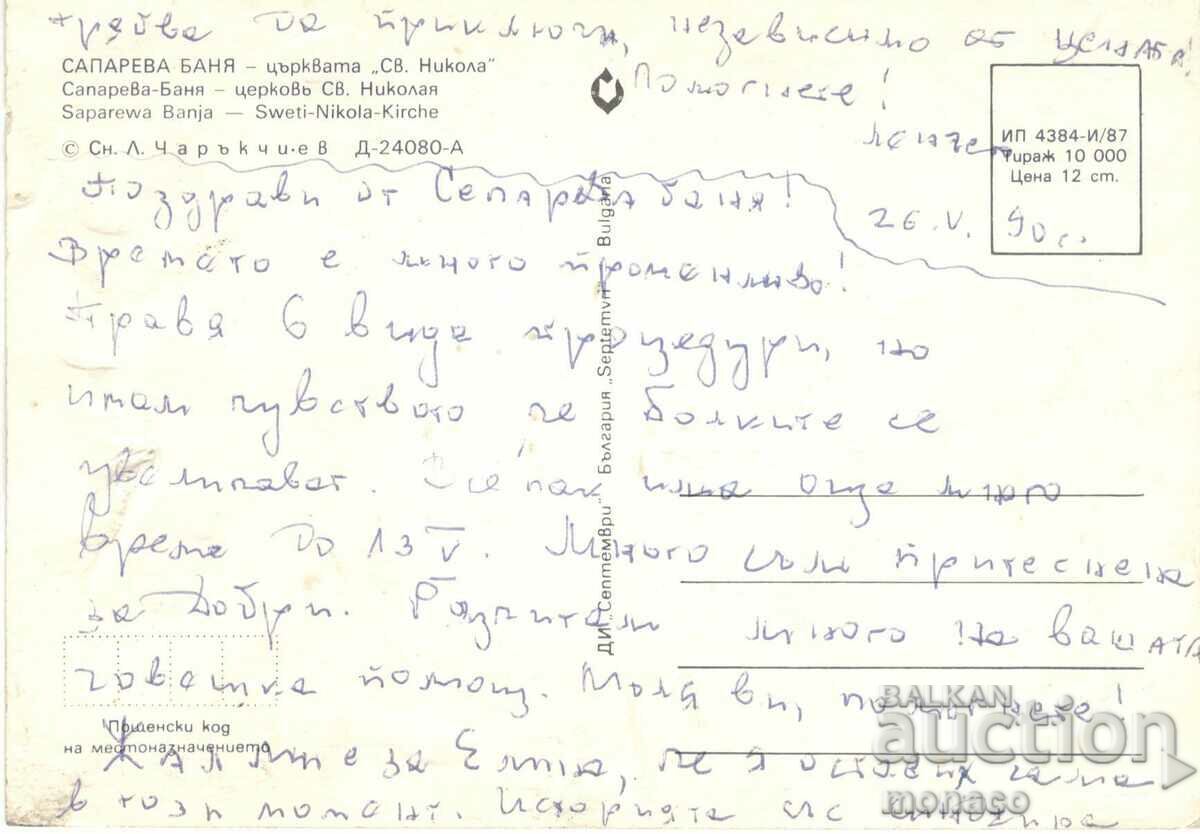 трябва да приключи, независимо от цената!
Помогнете!
САПАРЕВА БАНЯ – църквата „Св. Никола"
Сапарева-Баня – церковь Св. Николая
Saparewa Banja — Sweti-Nikola-Kirche
© Сн. Л. Чаръкчиев Д-24080-А
ИП 4384-И/87
Тираж 10 000
Цена 12 ст.
26.V. 90 г.
Поздрави от Сепарева баня!
Времето е много променливо!
Правя 6 вида процедури, но
имам чувството че болките се
увеличават. Все пак има още много
време до 13 V. Много съм притеснена
за Добри. Разчитам много на вашата
човешка помощ. Моля ви, помогнете!
Пощенски код
на местоназначението
Жал ми е за Елка, че я оставих сама
в този момент. Историята със
ДИ „Септември" България „Septemvri" Bulgaria
BALKAN
auction
monaco